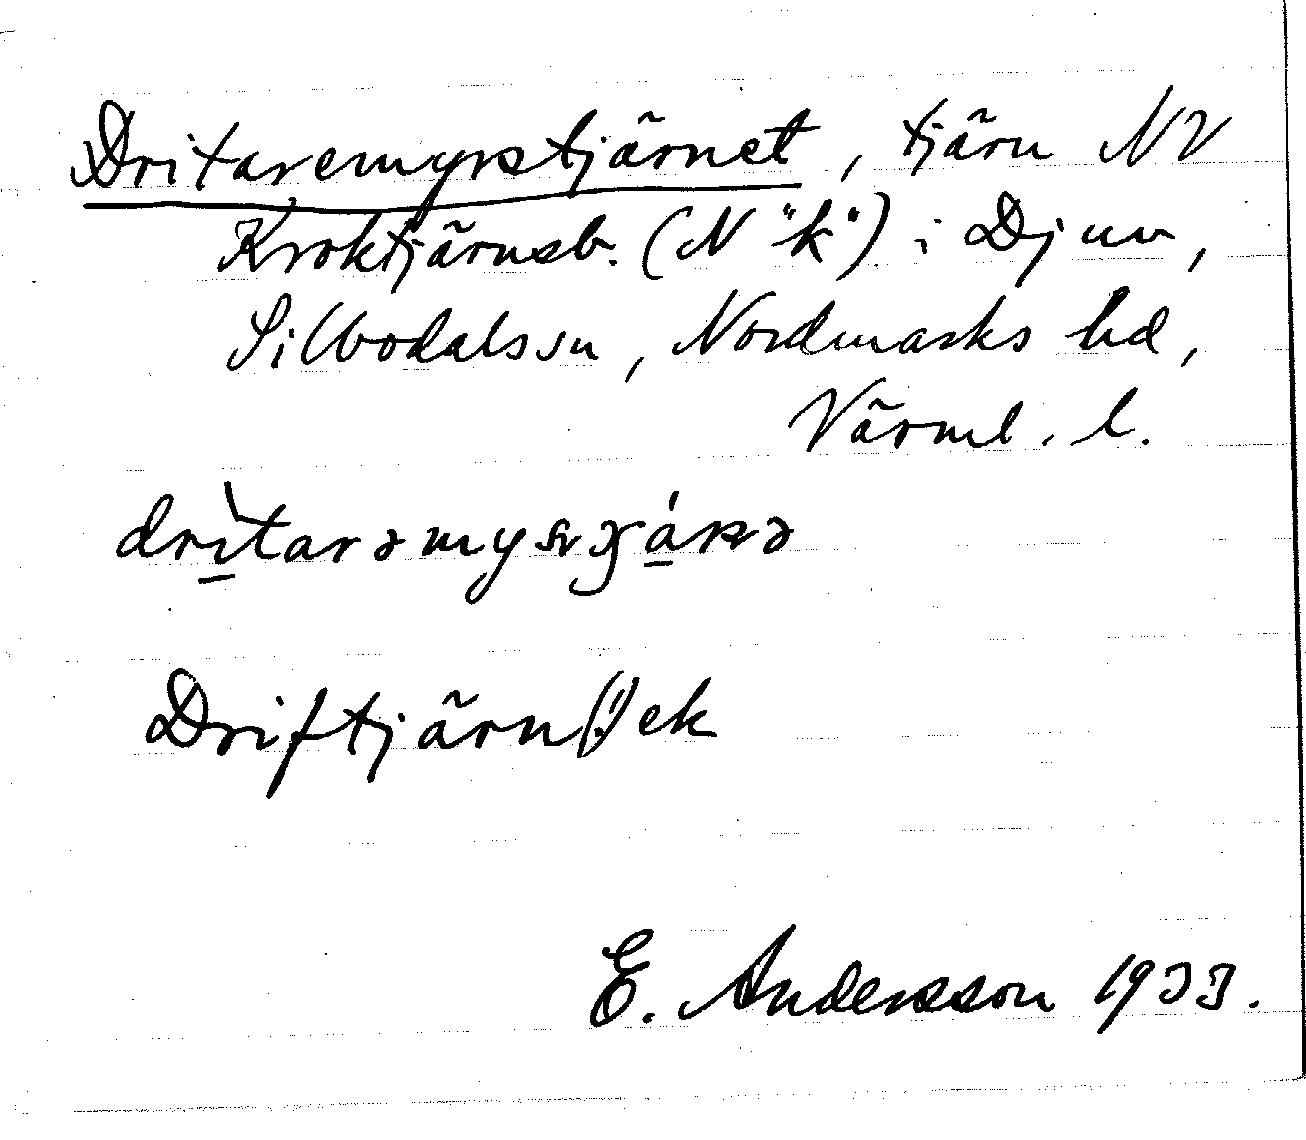 Dritaremyrstjärnet, tjärn NV
Kroktjärnsb. (N "k") i Djuv,
Silbodals sn, Nordmarks hd,
Värml. l.
Driftjärn(!) ek
E. Andersson 1933.